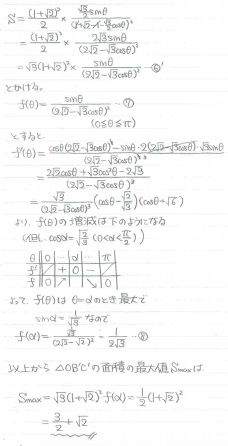 S = \frac{(1+\sqrt{2})^2}{2} × \frac{\frac{\sqrt{3}}{2} sinθ}{(\sqrt{2}-\frac{\sqrt{3}}{2}cosθ)^2}
= \frac{(1+\sqrt{2})^2}{2} × \frac{2\sqrt{3} sinθ}{(2\sqrt{2}-\sqrt{3}cosθ)^2}
= \sqrt{3}(1+\sqrt{2})^2 × \frac{sinθ}{(2\sqrt{2}-\sqrt{3}cosθ)^2} …⑥'
とかける。
f(θ) = \frac{sinθ}{(2\sqrt{2}-\sqrt{3}cosθ)^2} …⑦
(0≦θ≦π)
とすると
f'(θ) = \frac{cosθ(2\sqrt{2}-\sqrt{3}cosθ)^2 - sinθ・2(2\sqrt{2}-\sqrt{3}cosθ)・\sqrt{3}sinθ}{(2\sqrt{2}-\sqrt{3}cosθ)^4}
= \frac{2\sqrt{2}cosθ+\sqrt{3}cos^2θ-2\sqrt{3}}{(2\sqrt{2}-\sqrt{3}cosθ)^3}
= \frac{\sqrt{3}}{(2\sqrt{2}-\sqrt{3}cosθ)^3}(cosθ-\sqrt{\frac{2}{3}})(cosθ+\sqrt{6})
より、f(θ)の増減は下のようになる
(但し cosα=\sqrt{\frac{2}{3}} (0<α<\frac{π}{2}))
θ 0 … α … π
f' + 0 −
f 0 ↗ ↘ 0
よって f(θ)は θ=αのとき最大で
sinα = \frac{1}{\sqrt{3}} なので
f(α) = \frac{\frac{1}{\sqrt{3}}}{(2\sqrt{2}-\sqrt{2})^2} = \frac{1}{2\sqrt{3}} …⑧
以上から △OB'C'の面積の最大値Smaxは
Smax = \sqrt{3}(1+\sqrt{2})^2 f(α) = \frac{1}{2}(1+\sqrt{2})^2
= \frac{3}{2}+\sqrt{2}